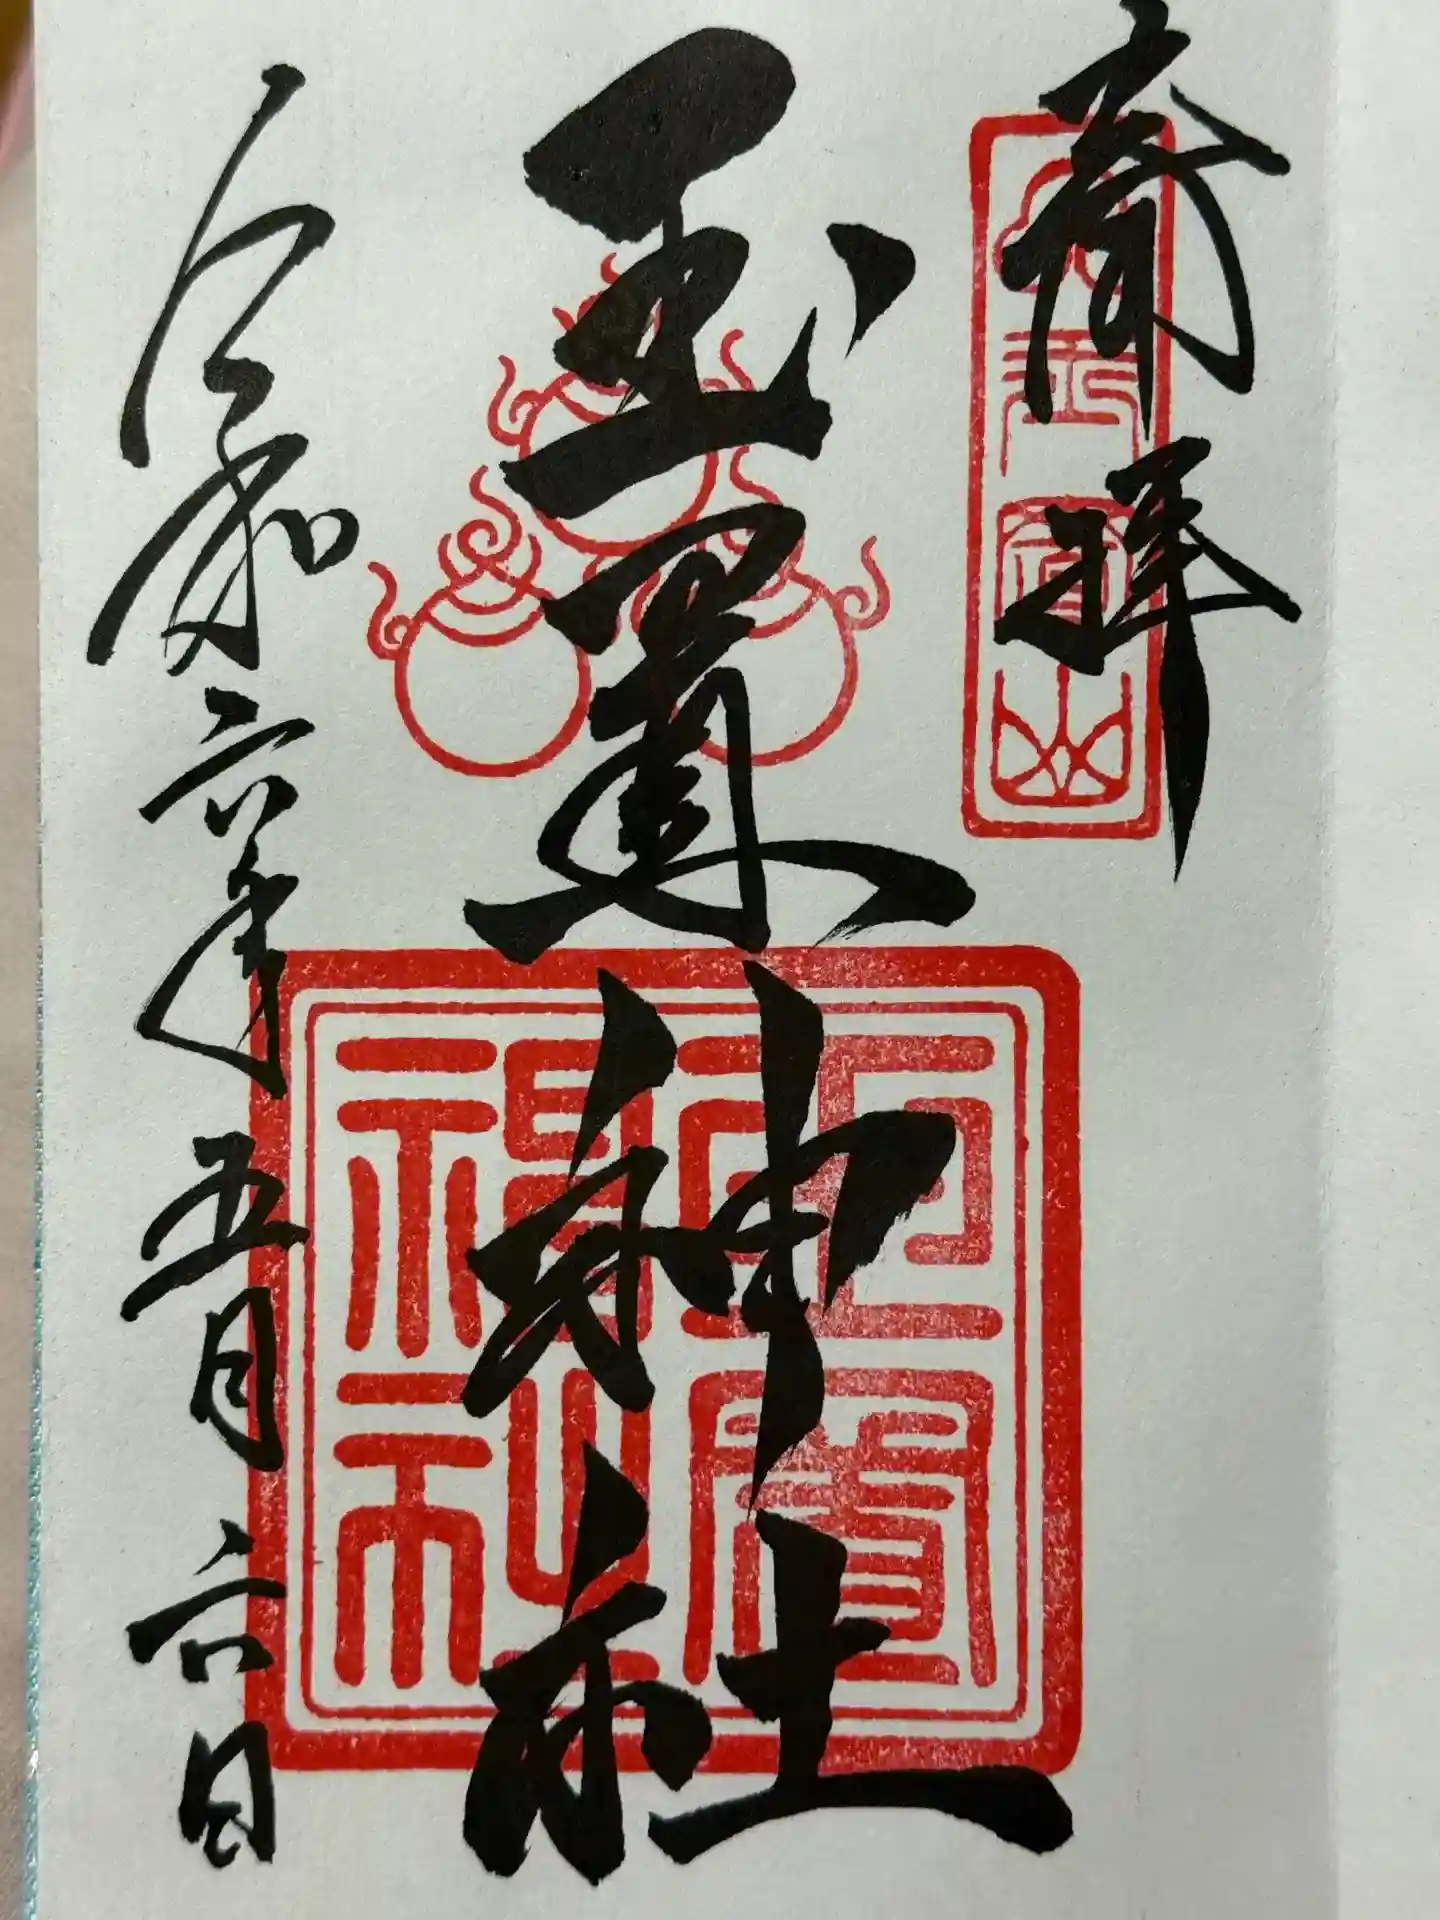 斎拝
玉置神社
玉置神社
令和六年五月六日